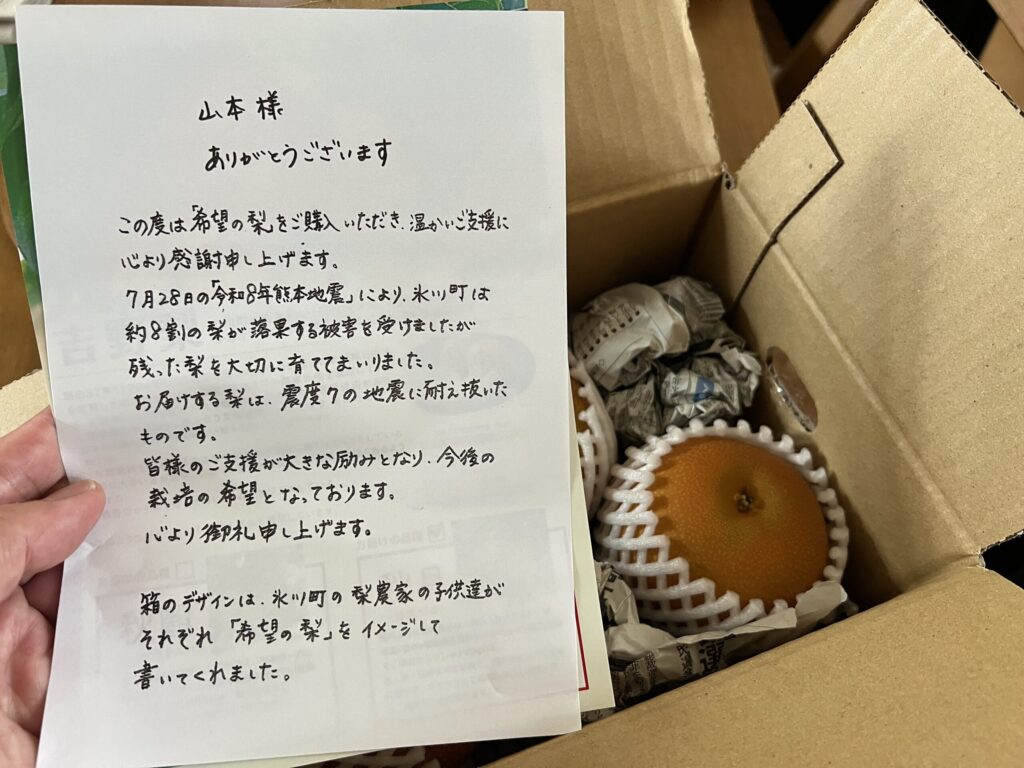 山本様
ありがとうございます
この度は「希望の梨」をご購入いただき、温かいご支援に
心より感謝申し上げます。
7月28日の「令和8年熊本地震」により、氷川町は
約8割の梨が落果する被害を受けましたが
残った梨を大切に育ててまいりました。
お届けする梨は、震度7の地震に耐え抜いた
ものです。
皆様のご支援が大きな励みとなり、今後の
栽培の希望となっております。
心より御礼申し上げます。
箱のデザインは、氷川町の梨農家の子供達が
それぞれ「希望の梨」をイメージして
書いてくれました。